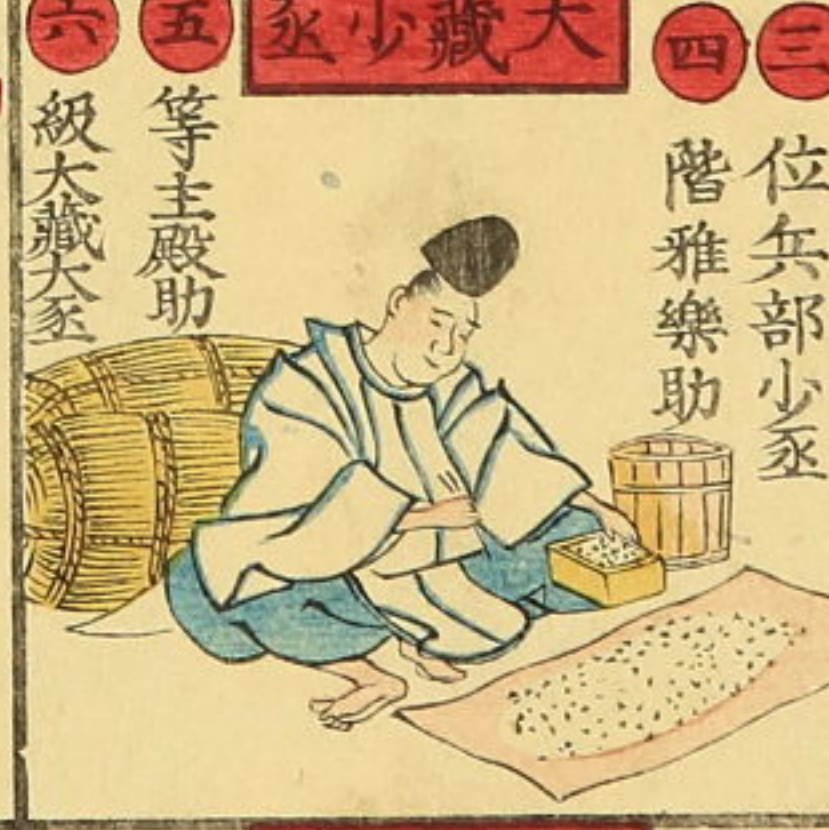 大藏少丞
三
位兵部少丞
四
階雅樂助
五
等主殿助
六
級大藏大丞